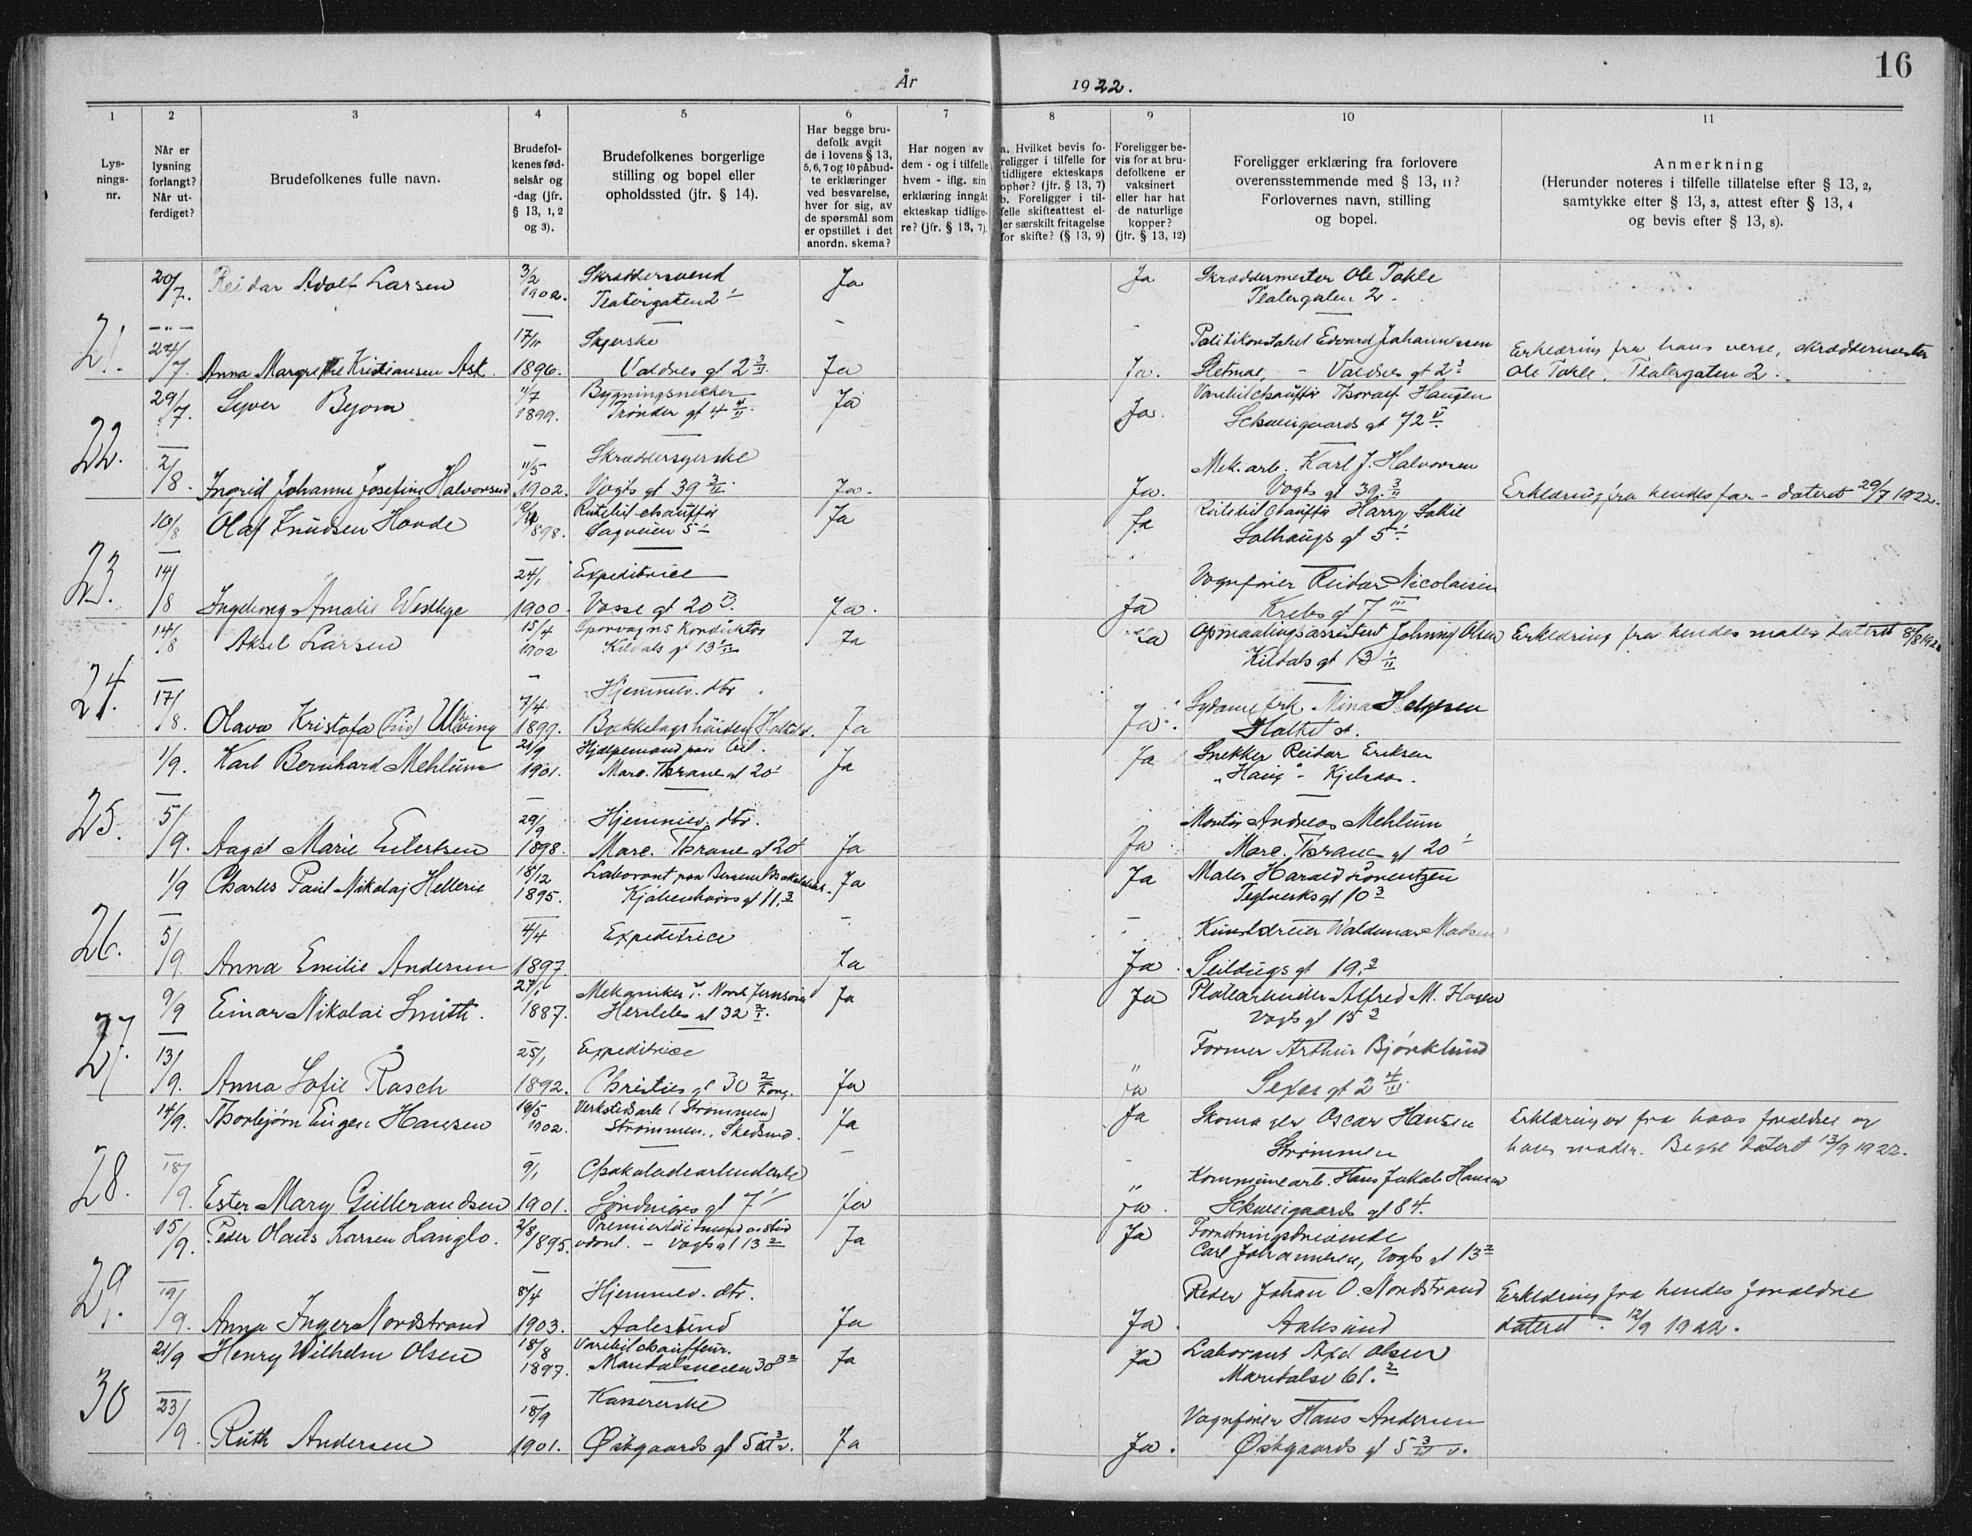 16
År 1922.
1
2
3
4
5
6
7
8
9
10
11
Lys-
nings-
nr.
Når er
lysning
forlangt?
Når ut-
ferdiget?
Brudefolkenes fulle navn.
Brudefol-
kenes fød-
selsår og
-dag (jfr.
§ 13, 1, 2
og 3).
Brudefolkenes borgerlige
stilling og bopel eller
opholdssted (jfr. § 14).
Har begge bru-
defolk avgit
de i lovens § 13,
5, 6, 7 og 10 påbud-
te erklæringer
ved besvarelse,
hver for sig, av
de spørsmål som
er opstillet i det
anordn. skema?
Har nogen av
dem - og i tilfelle
hvem - iflg. sin
erklæring inngåt
ekteskap tidlige-
re? (jfr. § 13, 7).
a. Hvilket bevis fo-
religger i tilfelle for
tidligere ekteskaps
ophør? (jfr. § 13, 7)
b. Foreligger i til-
felle skifteattest el-
ler særskilt fritagelse
for skifte? (§ 13, 9)
Foreligger be-
vis for at bru-
defolkene er
vaksinert
eller har hat
de naturlige
kopper?
(jfr. § 13, 12)
Foreligger erklæring fra forlovere
overensstemmende med § 13, 11?
Forlovernes navn, stilling
og bopel.
Anmerkning
(Herunder noteres i tilfelle tillatelse efter § 13, 2,
samtykke efter § 13, 3, attest efter § 13, 4
og bevis efter § 13, 8).
20/7. Reidar Adolf Larsen 3/2 1902. Skræddersvend Ja Ja Skræddermester Ole Tokle
Teatergaten 2 Teatergaten 2.
21. 24/7. Anna Margrethe Kristiansen Ask 17/11 1896. Syerske Ja Ja. Politikonstabel Edvard Johannessen
Valdres gt 2 Valdres gt 2
Erklæring fra hans verge, skræddermester
Ole Tokle, Teatergaten 2.
22. 29/7. Syver Bejom 11/7 1899. Bygningsnekker Ja Ja. Varebilchauffør Thoralf Haugen
Trønder gt 4 Schweigaards gt 72
2/8. Ingrid Johanne Josefine Halvorsen 11/5 1902. Skræddersyerske Ja. Ja. Mek. arb. Karl J. Halvorsen
Vogts gt 39 Vogts gt 39
Erklæring fra hendes far - dateret 29/7 1922.
23. 10/8 Olaf Knudsen Hovde 1898. Rutebilchauffør Ja Ja Rutebilchauffør Harry
Sagveien 5 Solhaugs gt 5
14/8 Ingeborg Amalie 24/1 1900. Expeditrice Ja. Ja Vognfører Reidar Nicolaisen
Vosse gt 20 Krebs gt 7
24. 14/8 Aksel Larsen 15/4 1902 Sporvagns Konduktør Ja Ja Opmaalingsassistent Johnny Olsen
Kildals gt 13 Kildals gt 13
Erklæring fra hendes moder dateret
17/8. Olava Kristofa Ulving 7/4 1899. Hjemmev. dtr. Ja Ja. Sydame frk. Mina Helgesen
Holtet st.
25. 1/9. Karl Bernhard Mehlum 21/9 1901. Hjælpemand paa bil. Ja Ja Snekker Reidar Eriksen
Marc. Thrane gt 20 "Haug" - Kjelsaas.
5/9. Aagot Marie Eilertsen 29/9 1898. Hjemmev. dtr. Ja Ja Montør Andreas Mehlum
Marc. Thrane gt 20 Marc. Thrane gt 20
26. 1/9 Charles Paul Nikolaj Hellerie 18/12 1895. Laborant paa Ja Ja Maler Harald Lorentzen
Kjøbenhavns gt 11. Teglverks gt 10
5/9. Anna Emilie Andersen 4/4 1897. Expeditrice Ja Ja Kunstdreier Waldemar Madsen
Seildugs gt 19.
27. 9/9 Einar Nikolai Smith. 1887. Mekaniker Ja Ja Platearbeider Alfred M. Hagen
Herslebs gt 32 Vogts gt 15
13/9. Anna Sofie Rasch 25/1 1892. Expeditrice Ja Ja Former Arthur Bjørklund
Christies gt 30 Sexes gt 2
28. 14/9. Thorbjørn Eugen Hansen 19/5 1902. Verkstedarb. (Strømmen) Ja Ja Skomager Oscar Hansen
Strømmen, Skedsmo. Strømmen
Erklæringer fra hans forældre og
hans moder. Begge datert 13/9 1922.
18/9. Ester Mary Gulbrandsen 9/1 1901. Chokoladearbeiderske Ja Ja. Kommunearb. Hans Jakob Hansen
Sørdniges gt 7 Schweigaards gt 84.
29. 15/9. Peder Olaus Larsen Langlo. 2/8 1895. Premierløitnant Ja Ja Forretningsdrivende
odont. - Vogts gt 13 Carl Johannesen, Vogts gt 13
19/9. Anna Inger Nordstrand 8/4 1903. Hjemmev. dtr. Ja Ja. Reder Johan O. Nordstrand
Aalesund Aalesund
Erklæring fra hendes forældre
dateret 12/9 1922.
30 21/9 Henry Wilhelm Olsen 18/8 1897. Varebilchauffeur. Ja Ja Laborant Axel Olsen
Maridalsveien 30 Maridalsv 61.
23/9. Ruth Andersen 18/9 1901. Kassererske Ja Ja. Vognfører Hans Andersen
Østgaards gt 5 Østgaards gt 5